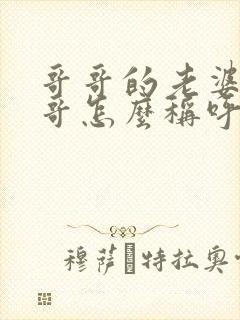 哥哥的老婆
哥怎麼稱呼
穆萨 特拉奥